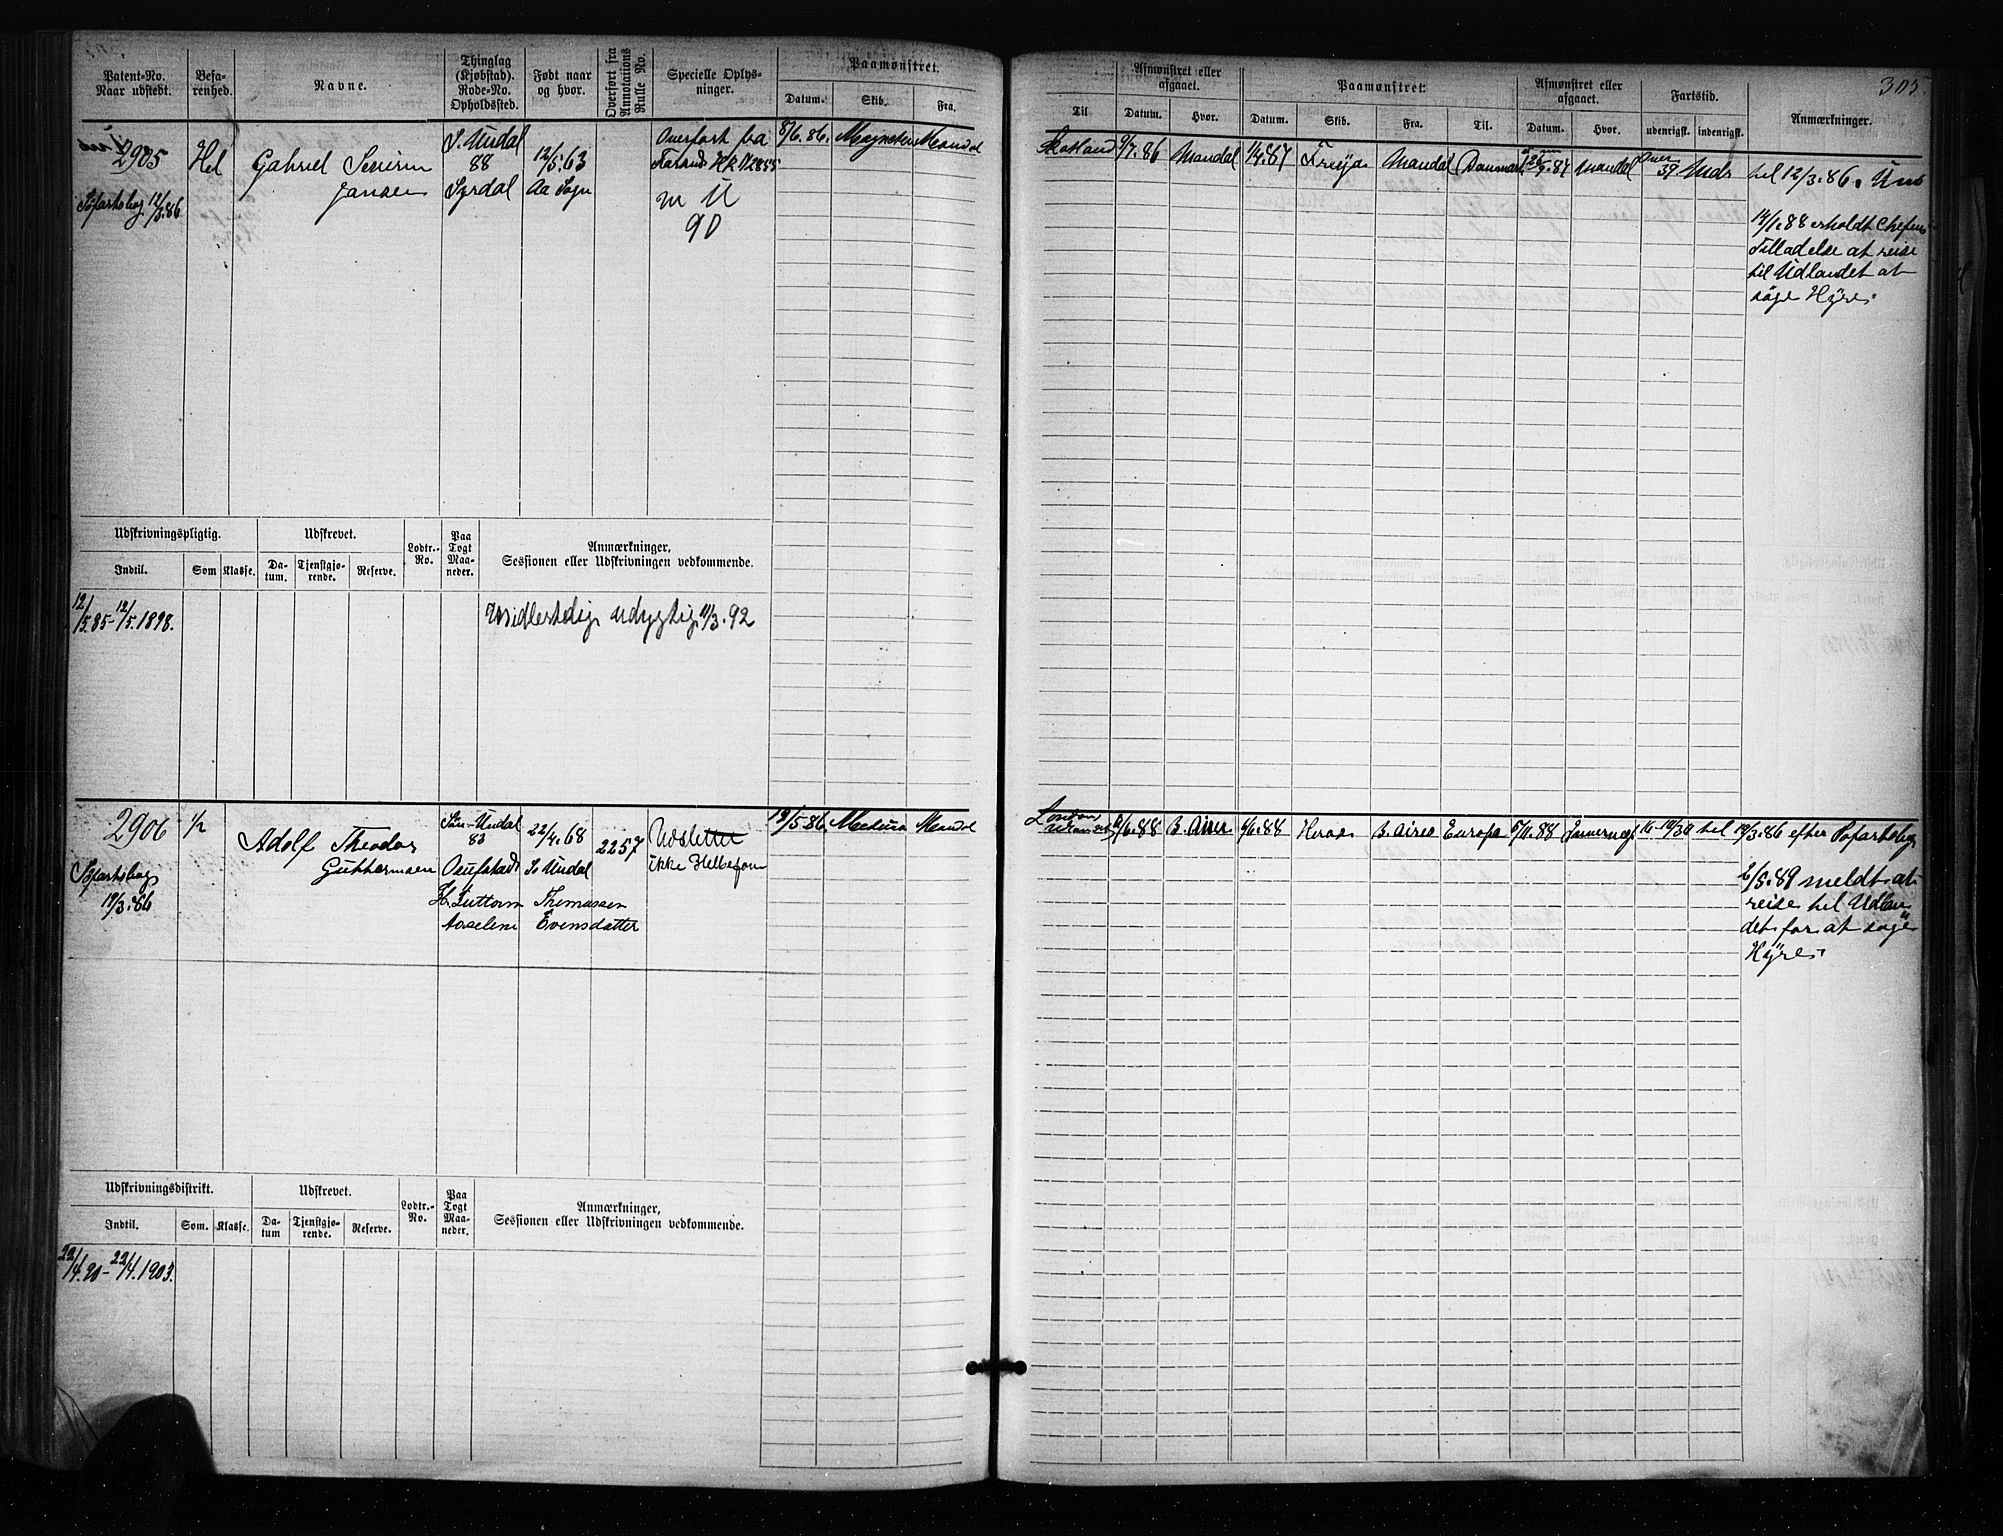 Patent-No. Naar udstedt.
Befarenhed.
Navne.
Thinglag (Kjøbstad). Rode-No. Opholdssted.
Født naar og hvor.
Overført fra Annotations Rulle No.
Specielle Oplysninger.
Paamønstret.
Datum. Skib. Fra.
2905
Søfartsbog 12/3.86
Hel
Gabriel Severin
Jansen
S. Undal
88
Syrdal
12/5.63
Aa Sogn
Overført fra
m U
90
8/6.86. Mandal
Udskrivningspligtig. Udskrevet. Lodtr.-No. Paa Togt Maaneder. Anmærkninger, Sessionen eller Udskrivningen vedkommende.
Indtil. Som Klasse. Datum. Tjenstgjørende. Reserve.
12/5.85-12/5.1898.
Midlertidig udygtig 11/3.92
2906
Søfartsbog
19/3.86
1/2
Adolf Theodor
Guttormsen
Sön-Undal
83
22/4.68
S. Undal
2257
Udslettet
ikke
H. Guttorm Thomassen
Evensdatter
19/5.86 Medusa Mandal
Udskrivningsdistrikt. Udskrevet. Lodtr.-No. Paa Togt Maaneder. Anmærkninger, Sessionen eller Udskrivningen vedkommende.
Indtil. Som. Klasse. Datum Tjenstgjørende. Reserve.
22/4.90-22/4.1903.
305.
Afmønstret eller afgaaet. Paamønstret: Afmønstret eller afgaaet. Fartstid.
Til Datum. Hvor. Datum. Skib. Fra. Til. Datum. Hvor. udenrigsk. indenrigsk. Anmærkninger.
Skotland 9/7.86 Mandal 1/4.87 Freya Mandal Danmark Mandal 39 Mdr til 12/3.86.
14/1.88 erholdt Chefens
Tilladelse at reise
til Udlandet at
søge Hyre.
London
6/6.88 B. Aires 9/6.88 B. Aires Europa 5/11.88 til 19/3.86 efter Søfartsbog
6/5.89 meldt at
reise til Udlan
det for at søge
Hyre.